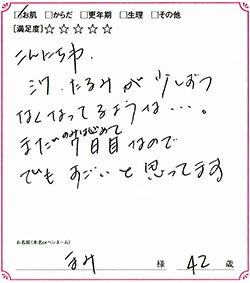 ☑お肌 □からだ □更年期 □生理 □その他
[満足度]☆☆☆☆☆
こんにちわ.
シワ.たるみが少しずつ
なくなってるような…。
のみはじめて
まだ 7日目なので
でもすごいと思ってます
お名前(本名orペンネーム)
まみ 様 42 歳